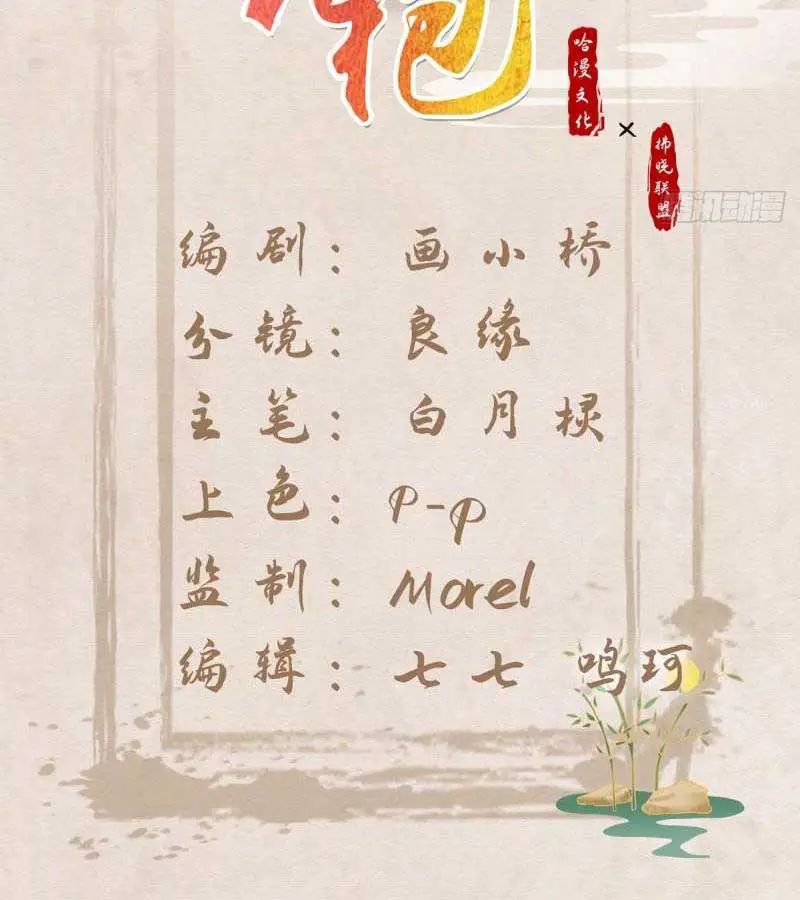 哈漫文化
×
拂晓联盟
腾讯动漫
编剧：画小桥
分镜：良缘
主笔：白月棂
上色：P-P
监制：Morel
编辑：七七 鸣珂